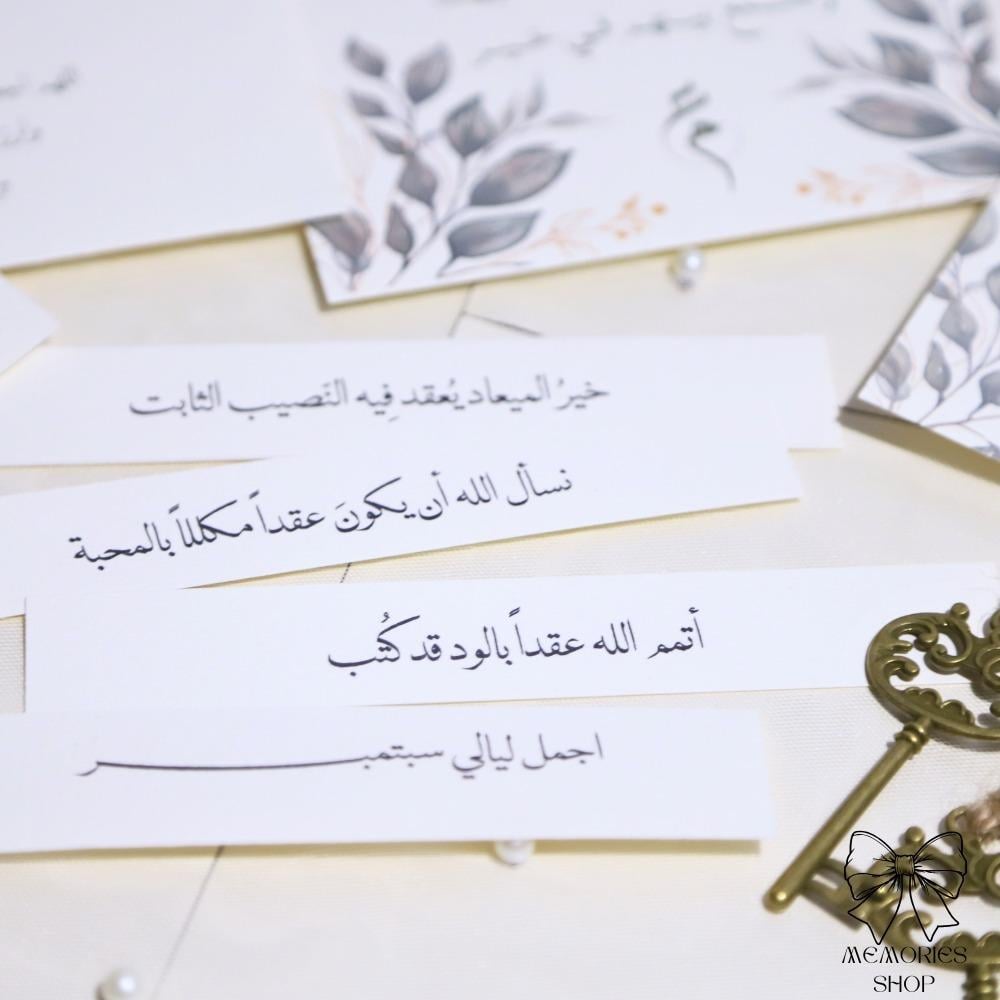 في خير
م ع
خيرُ الميعاد يُعقد فِيه النَصيب الثابت
نسأل الله أن يكونَ عقداً مكللاً بالمحبة
أتمم الله عقداً بالود قد كُتب
اجمل ليالي سبتمبـــــــــــر
MEMORIES
SHOP